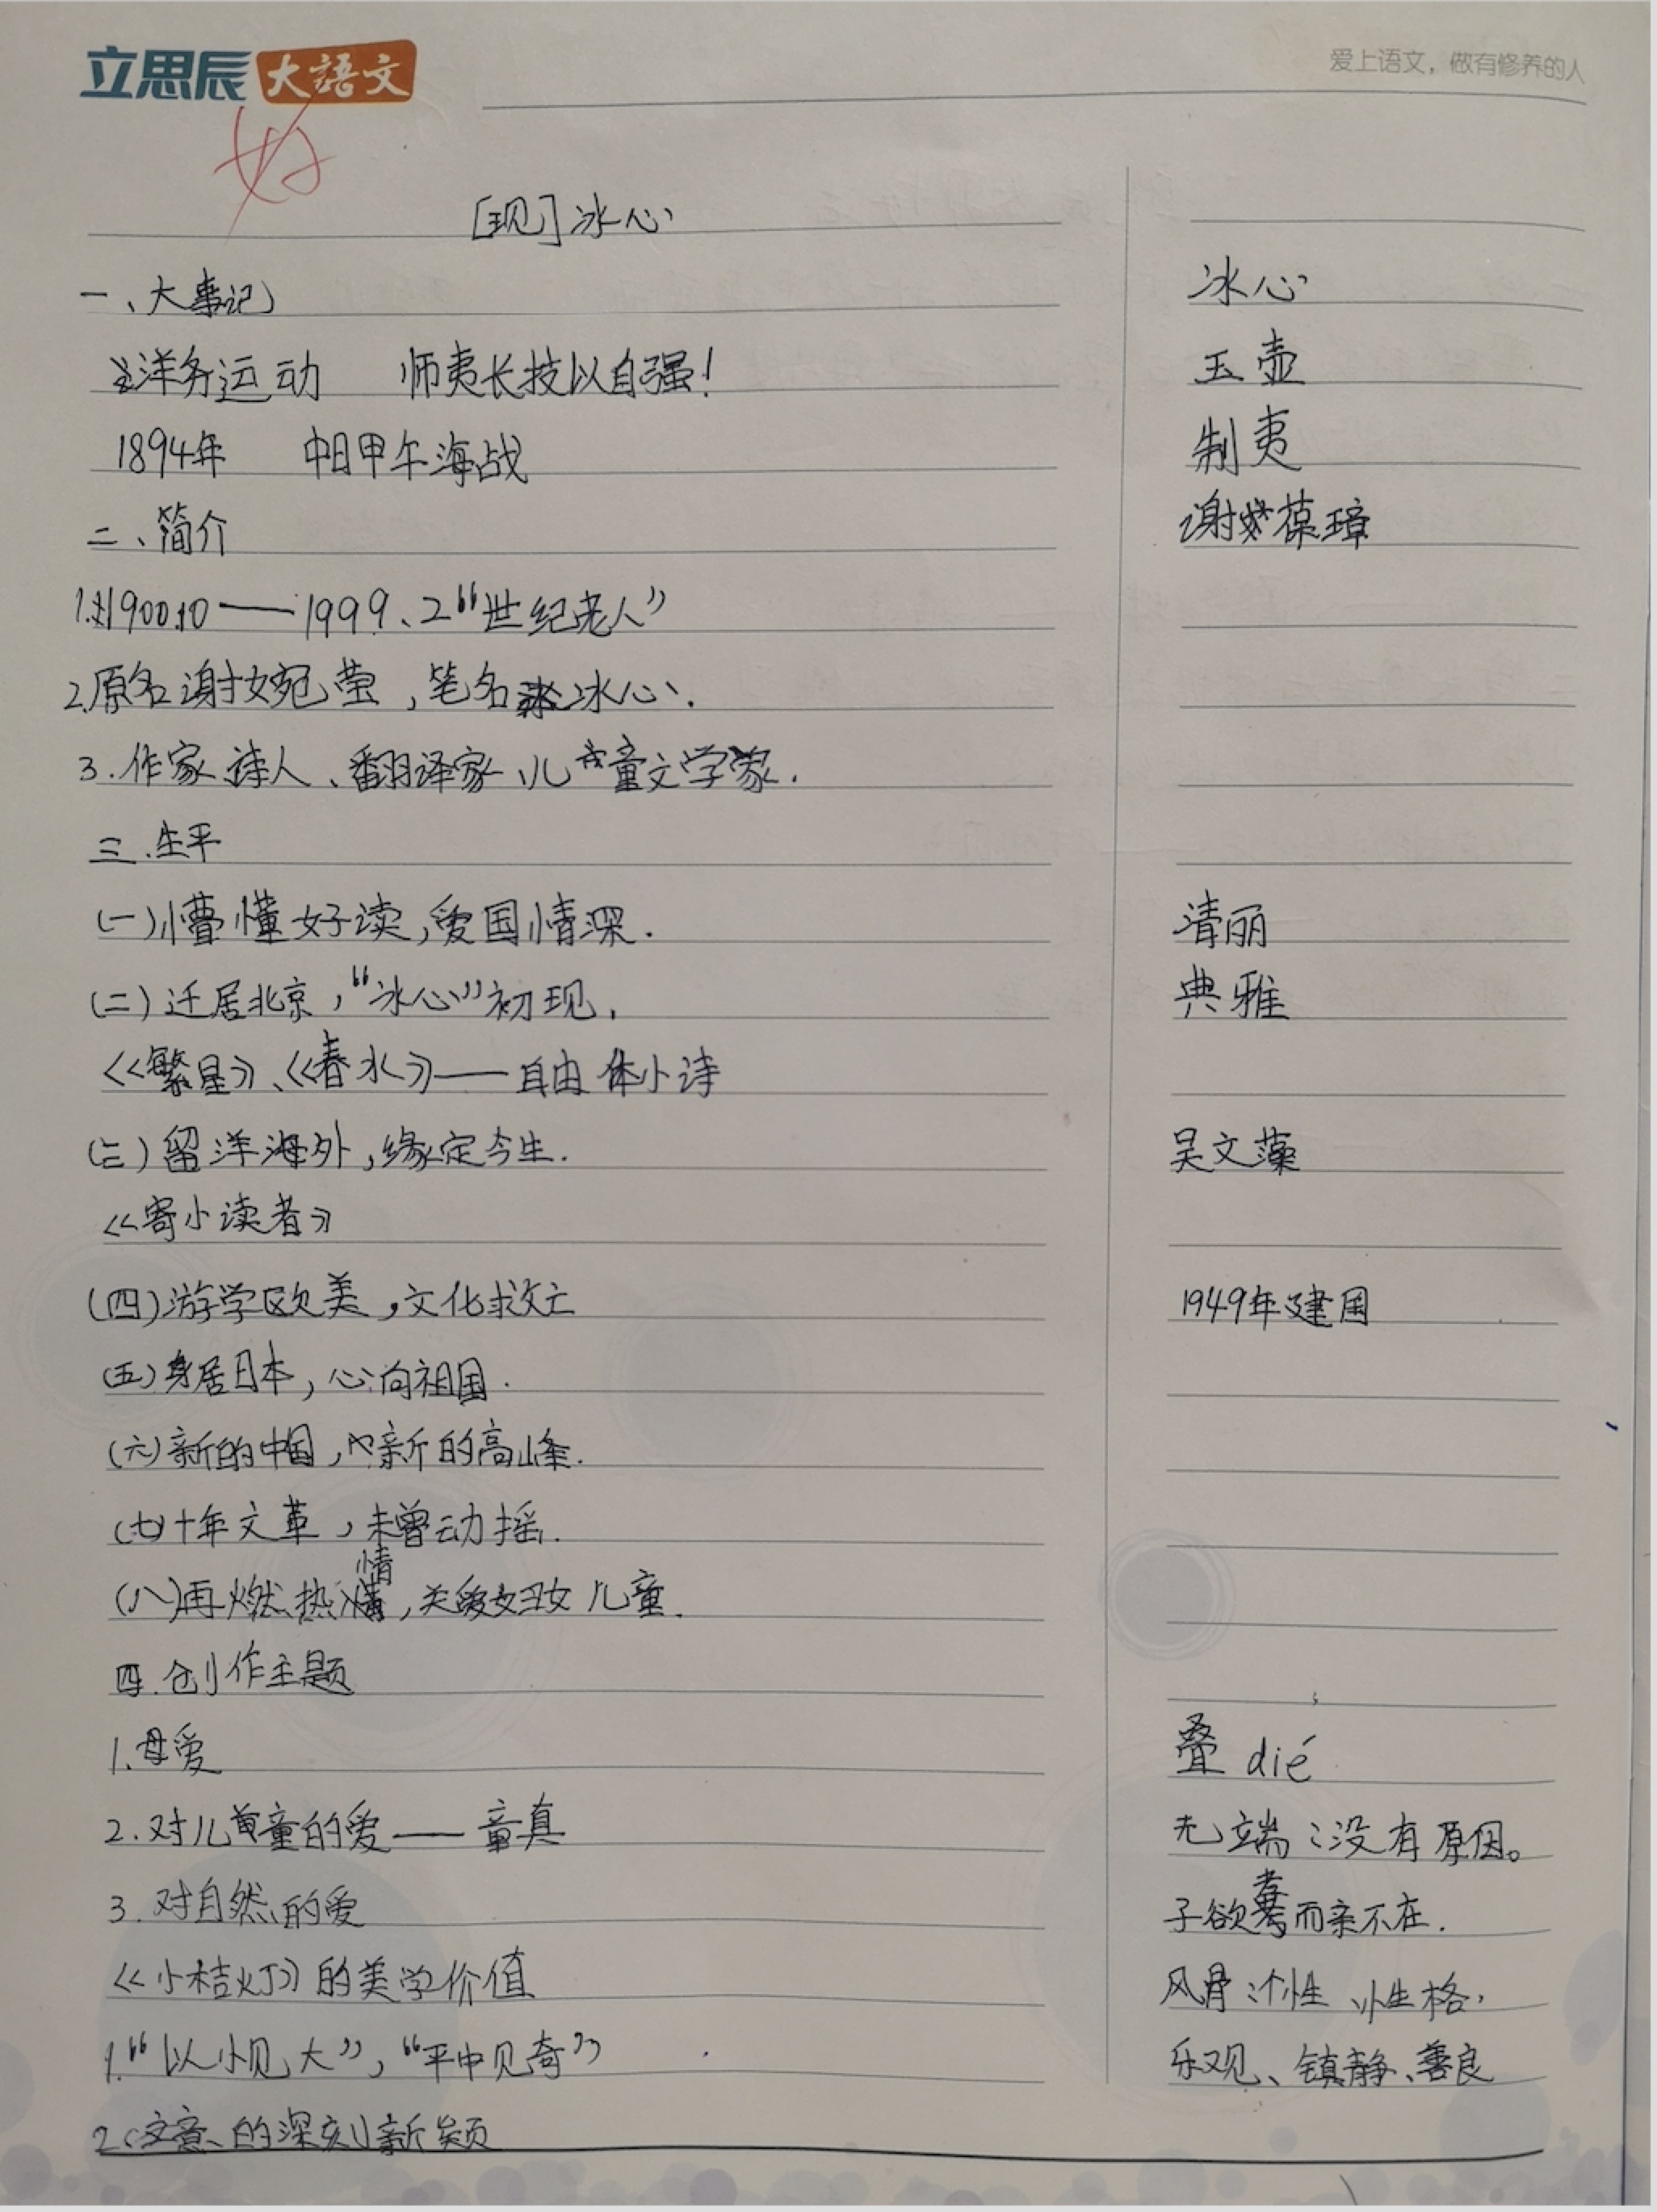 立思辰大語文
爱上语文，做有修养的人
好
[现]冰心
一、大事记
洋务运动 师夷长技以自强！
1894年 中日甲午海战
二、简介
1.1900.10——1999、2“世纪老人”
2.原名谢婉莹，笔名冰心、
3.作家、诗人、翻译家、儿童文学家.
三.生平
(一)懵懂好读，爱国情深.
(二)迁居北京，“冰心”初现，
《繁星》、《春水》——自由体小诗
(三)留洋海外，缘定今生.
《寄小读者》
(四)游学欧美，文化救亡
(五)身居日本，心向祖国.
(六)新的中国，新的高峰.
(七)十年文革，未曾动摇.
(八)再燃热情，关爱妇女儿童.
四.创作主题
1.母爱
2.对儿童的爱——童真
3.对自然的爱
《小桔灯》的美学价值
1.“以小见大”，“平中见奇”
2.文意的深刻新颖
冰心
玉壶
制夷
谢葆璋
清丽
典雅
吴文藻
1949年建国
叠 dié
无端：没有原因。
子欲养而亲不在.
风骨：个性、性格，
乐观、镇静、善良